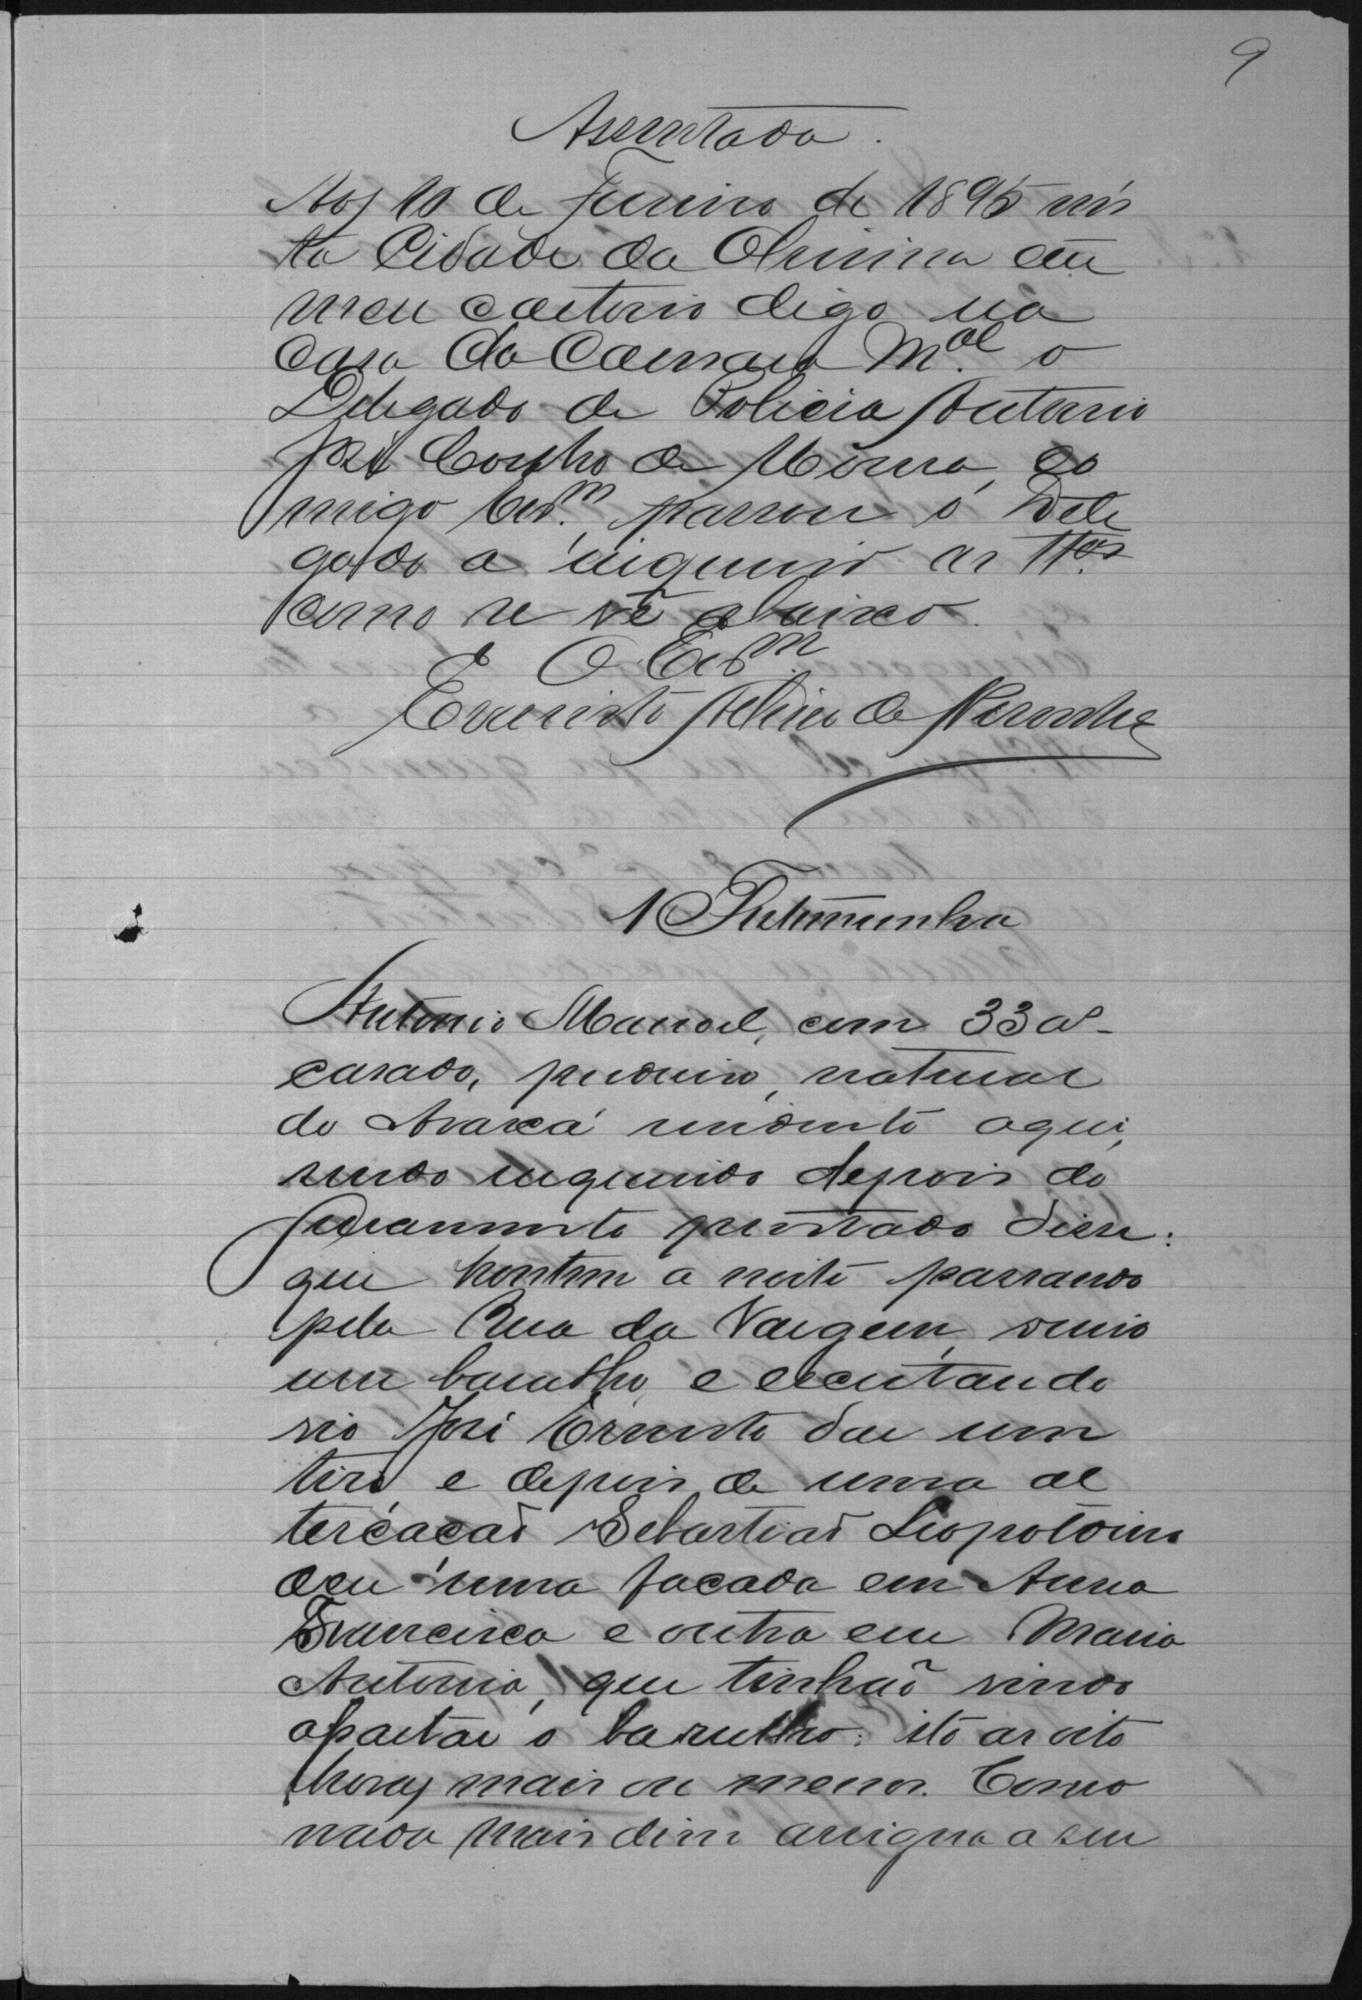 9
Assentada.
Aos 10 de Junho de 1895 nes
ta Cidade da Christina em
meu cartorio digo na
casa da Camara M.al o
Delegado de Policia Antonio
José Coelho de Moura, co
migo Escr.m passou o Dele
gado a inquerir as tt.as
como se vê abaixo.
O Escr.m
Evaristo de
1 Testemunha
Antonio Manoel, com 33 a.s
casado, pedreiro, natural
do Araxá residente aqui,
sendo inquerido depois do
juramento prestado disse:
que hontem a noite passando
pela Rua da Vargem, ouvio
um barulho, e escutando
vio José Ernesto dar um
tiro e depois de uma al
tercação Sebastião Leopoldino
deu uma facada em Anna
Francisca e outra em Maria
Antonia, que tinhão vindo
apartar o barulho: isto as oito
horas mais ou menos. Como
nada mais disse assigna a seu